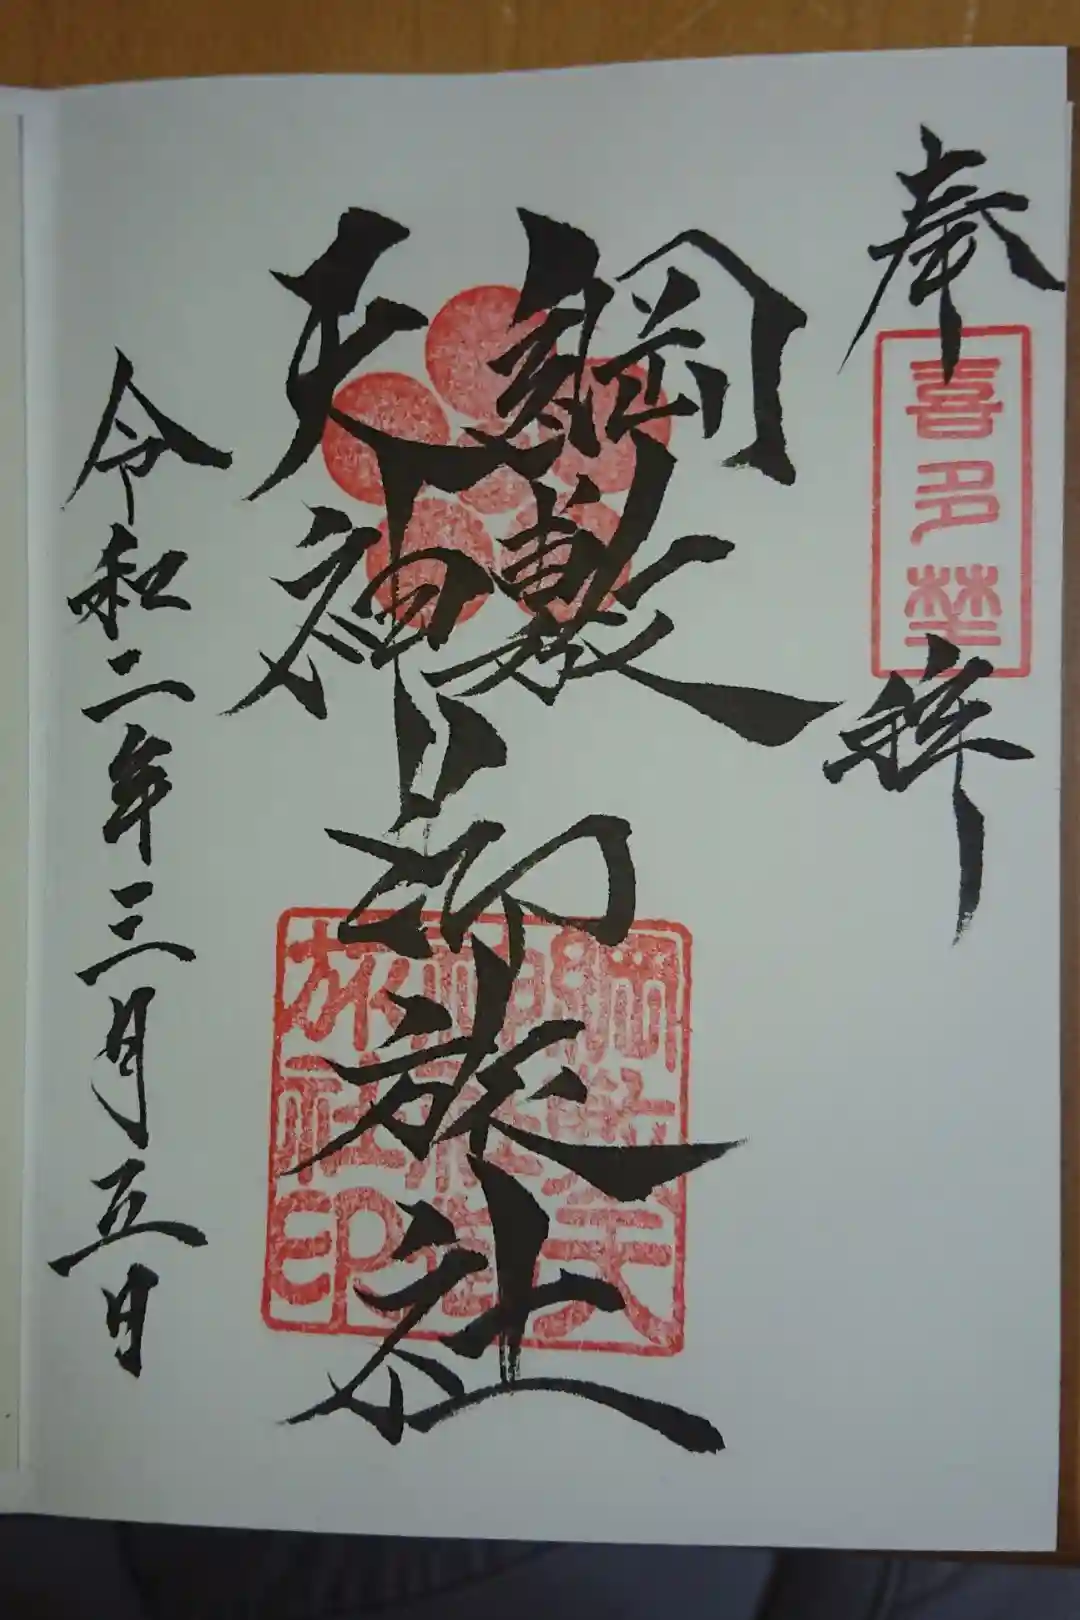 奉拝
喜多埜
綱敷
天神
御旅社
令和二年三月五日
綱敷天
旅社印